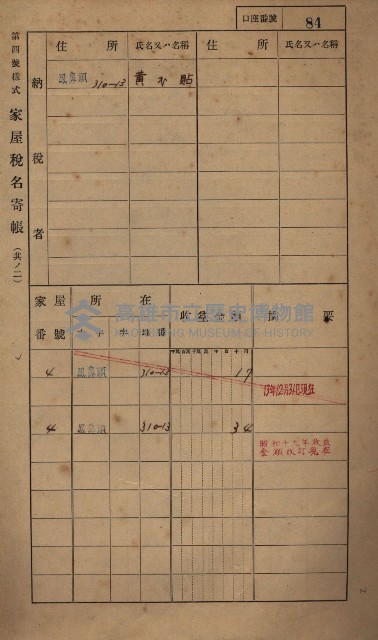 口座番號 84
第四號樣式 家屋稅名寄帳 (其ノ二)
納稅者
住所 氏名又ハ名稱 住所 氏名又ハ名稱
鳳鼻頭 310-13 黃 貼
家屋番號 所在 收益金額 摘要
大字 字 地番
4 鳳鼻頭 310-13 17
13年12月31日現在
4 鳳鼻頭 310-13 34
昭和十九年收益
金額改訂現在
高雄市立歷史博物館
KAOHSIUNG MUSEUM OF HISTORY